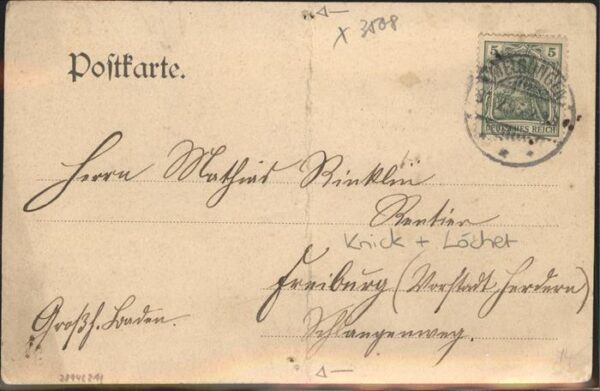 x 3508
Postkarte.
5 5
DEUTSCHES REICH
Herrn Mathias Rinklin
Rentier
Knick + Löcher
Freiburg (Vorstadt Herdern)
Großh. Baden.
Schlangenweg.